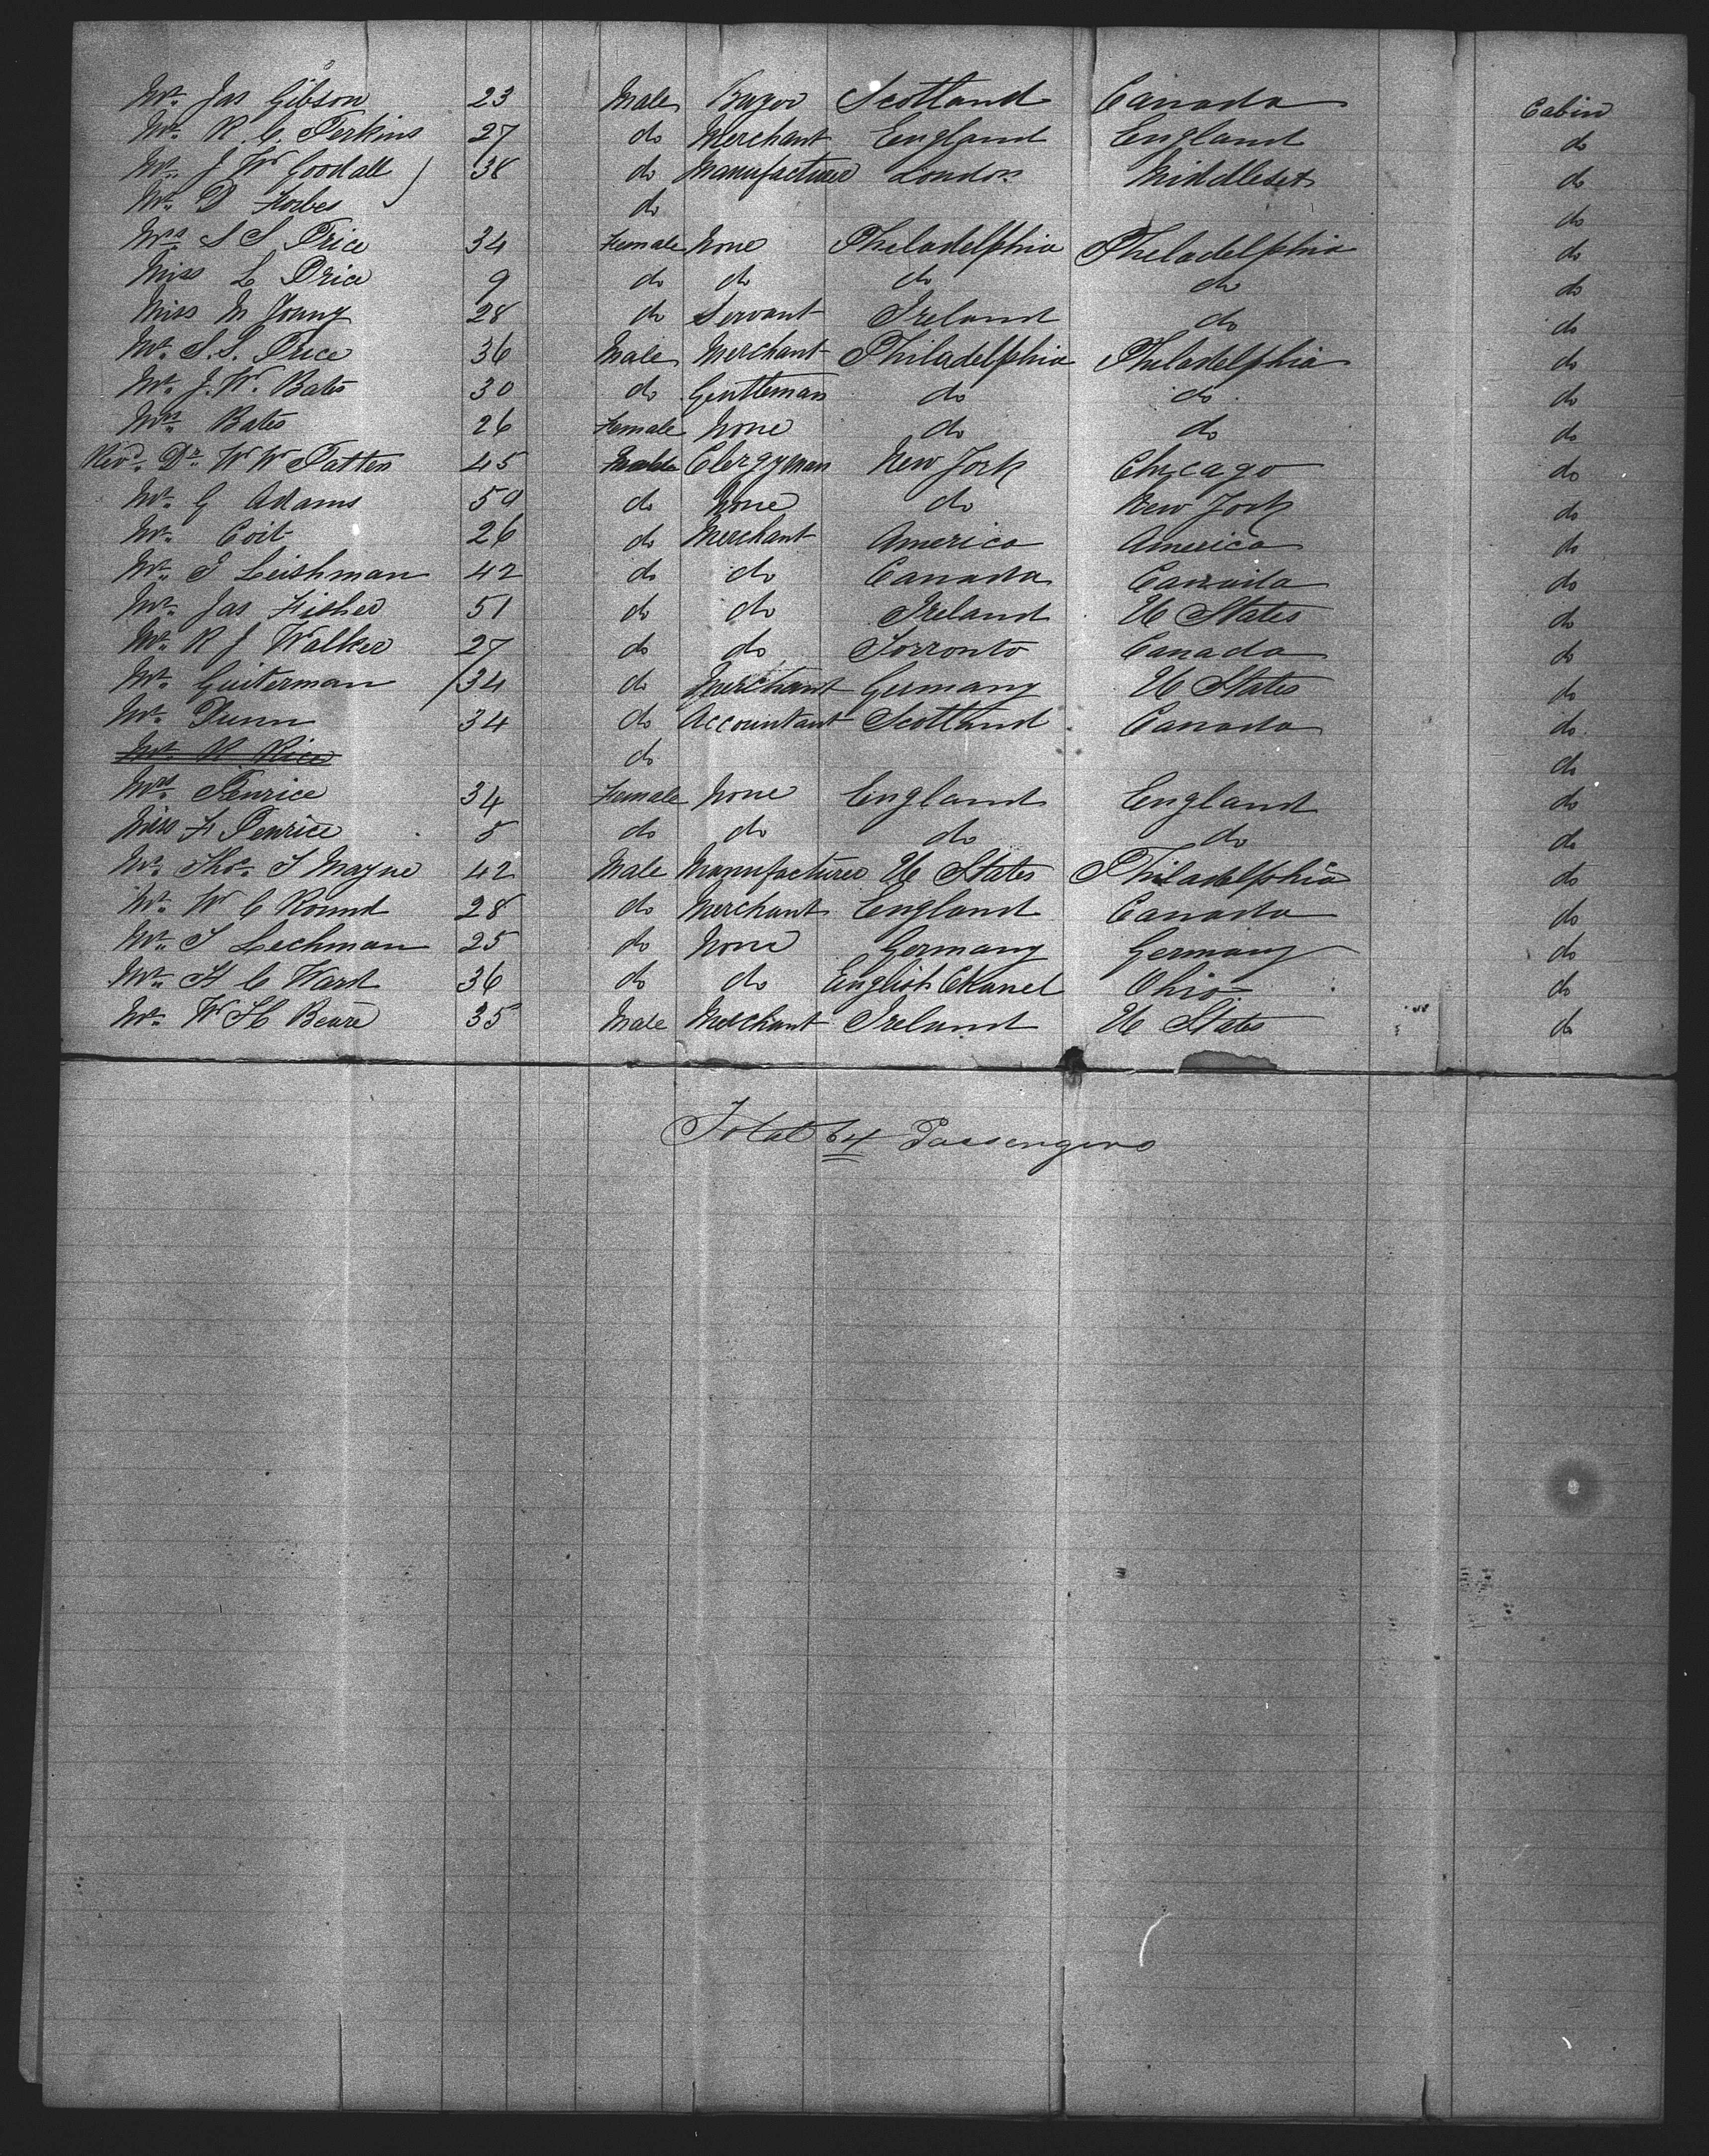 Mr. Jas Gibson 23 Male Scotland Canada Cabin
Mr. R. C. Perkins 27 do Merchant England England do
Mr. J W Goodall 38 do Manufacturer London Middlesex do
Mr. D Forbes do do
Mrs. S S Price 34 Female None Pheladelphia Pheladelphia do
Miss L Price 9 do do do do do
Miss M Young 28 do Servant Ireland do do
Mr. S. S. Price 36 Male Merchant Philadelphia Pheladelphia do
Mr. J. W. Bates 30 do Gentleman do do do
Mrs. Bates 26 Female None do do do
Revd. Dr. W W Patten 45 Male Clergyman New York Chicago do
Mr. G Adams 50 do None do New York do
Mr. Coit 26 do Merchant America America do
Mr. J Leishman 42 do do Canada Canada do
Mr. Jas Fisher 51 do do Ireland U States do
Mr. R J Walker 27 do do Torronto Canada do
Mr. Guiterman 34 do Merchant Germany U States do
Mr. Dunn 34 do Accountant Scotland Canada do
Mr. R. Rice do do
Mrs. Penrice 34 Female None England England do
Miss F Penrice 5 do do do do do
Mr. Thos. S Mayne 42 Male Manufacturer U States Philadelphia do
Mr. W C Round 28 do Merchant England Canada do
Mr. S Lechman 25 do None Germany Germany do
Mr. H C Ward 36 do do English Chanel Ohio do
Mr. W H Beare 35 Male Merchant Ireland U States do
Total 64 Passengers